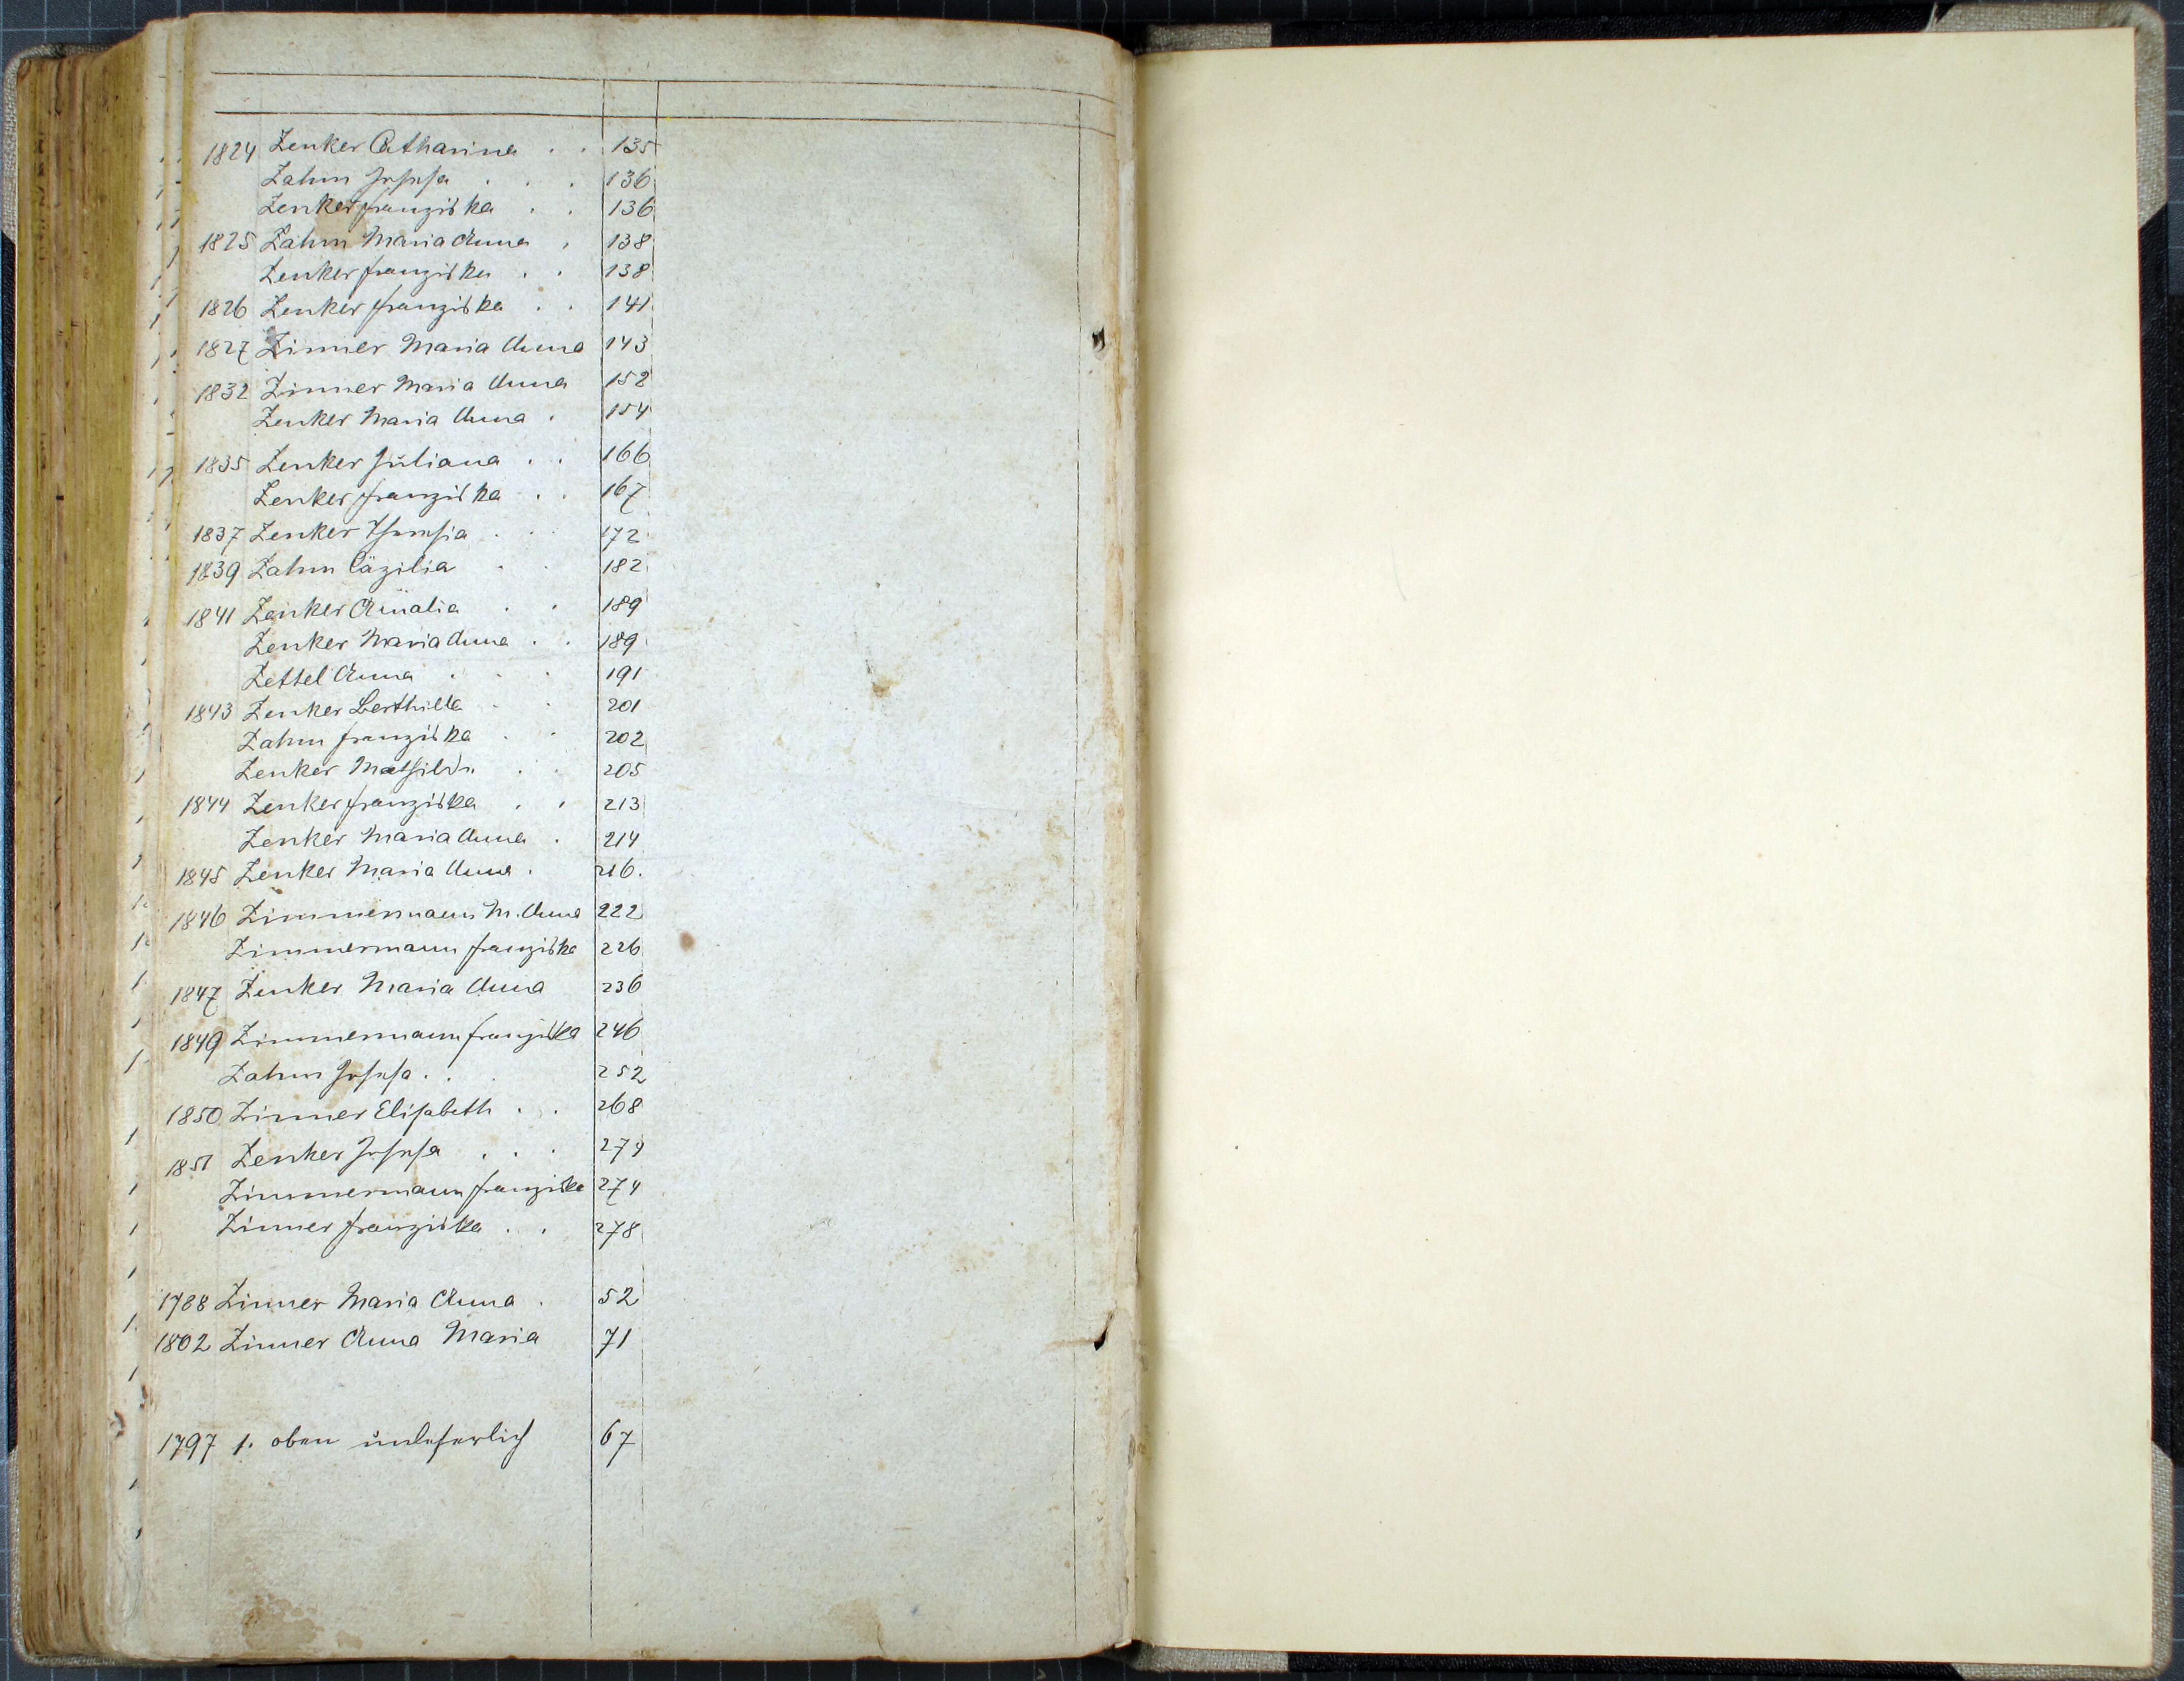 1824 Zenker Catharina . . 135
Zahm Josefa . . . 136
Zenker Franziska . . 136
1825 Zahm Maria Anna . 138
Zenker Franziska . . 138
1826 Zenker Franziska . . 141
1827 Zinner Maria Anna 143
1832 Zinner Maria Anna 152
Zenker Maria Anna . 154
1835 Zenker Juliana . . 166
Zenker Franziska . . 167
1837 Zenker Theresia . . . 172
1839 Zahm Cäzilia . . 182
1841 Zenker Amalia . . 189
Zenker Maria Anna . . 189
Zettel Anna . . . 191
1843 Zenker Berthilda . . 201
Zahm Franziska . . 202
Zenker Mathilda . . 205
1844 Zenker Franziska . . 213
Zenker Maria Anna . 214
1845 Zenker Maria Anna . 216.
1846 Zimmermann M. Anna 222
Zimmermann Franziska 226
1847 Zenker Maria Anna 236
1849 Zimmermann Franziska 246
Zahm Josefa . . . 252
1850 Zinner Elisabeth . . 268
1851 Zenker Josefa . . . 274
Zimmermann Franziska 274
Zinner Franziska . . 278
1788 Zinner Maria Anna . 52
1802 Zinner Anna Maria 71
1797 1. oben unleserlich 67